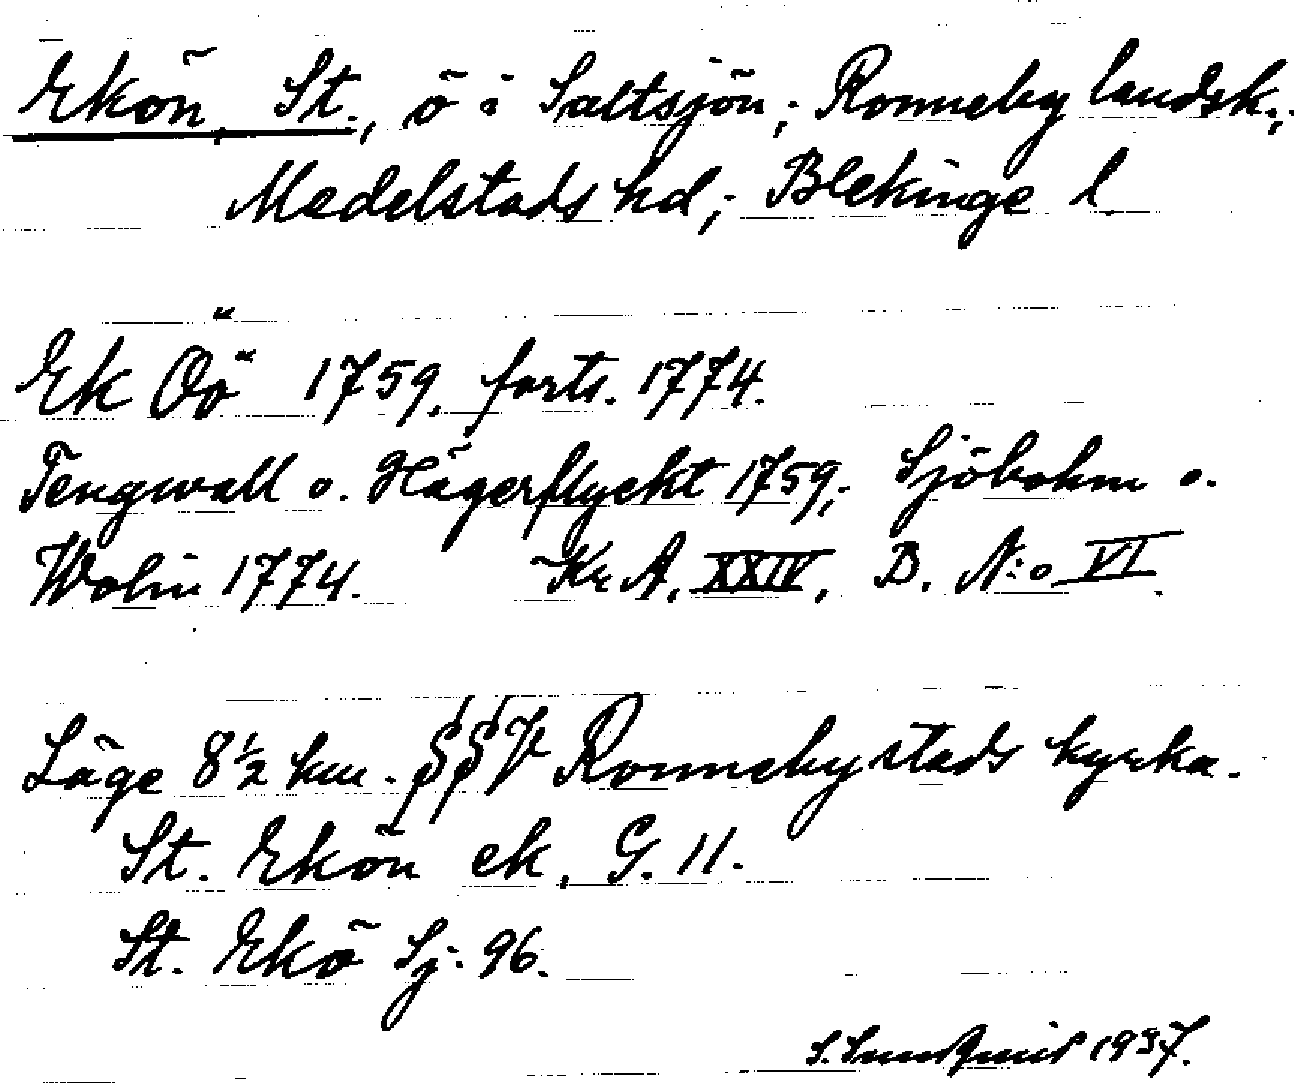 Ekön, St., ö i Saltsjön; Ronneby landsk.;
Medelstads hd; Blekinge l.
Ek Öö 1759, forts. 1774.
Tengwall o. Hägerflyckt 1759; Sjöbohm o.
Wolin 1774. Kr. A, XXIV, B. N:o VI.
Läge 8½ km. SSV Ronneby stads kyrka.
St. Ekön ek. G. 11.
St. Ekö Sj. 96.
S. 1937.